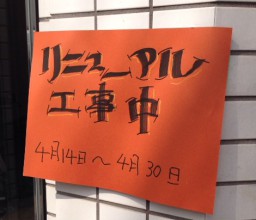 リニューアル
工事中
4月14日～4月30日